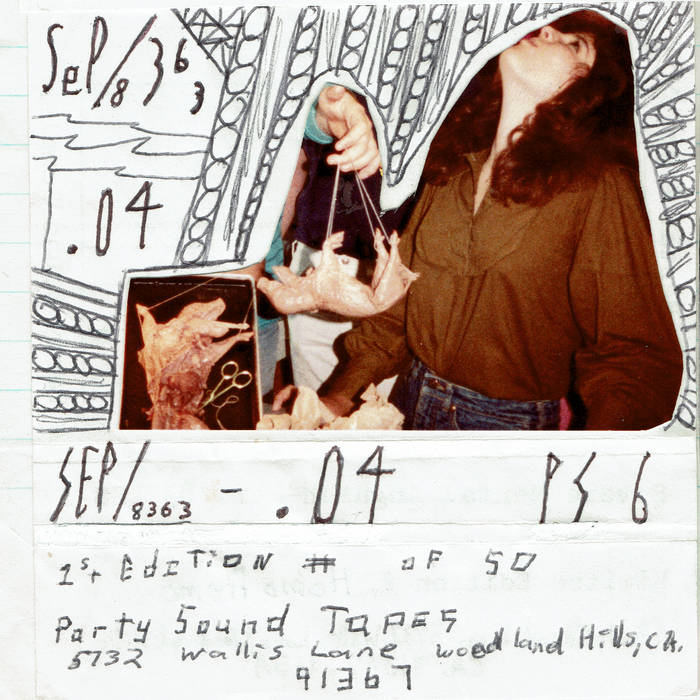 SeP/8363
.04
SEP/8363 - .04 PS 6
1st EdiTiON # oF 50
Party Sound TAPES
5732 wallis Lane woodland Hills, CA.
91367